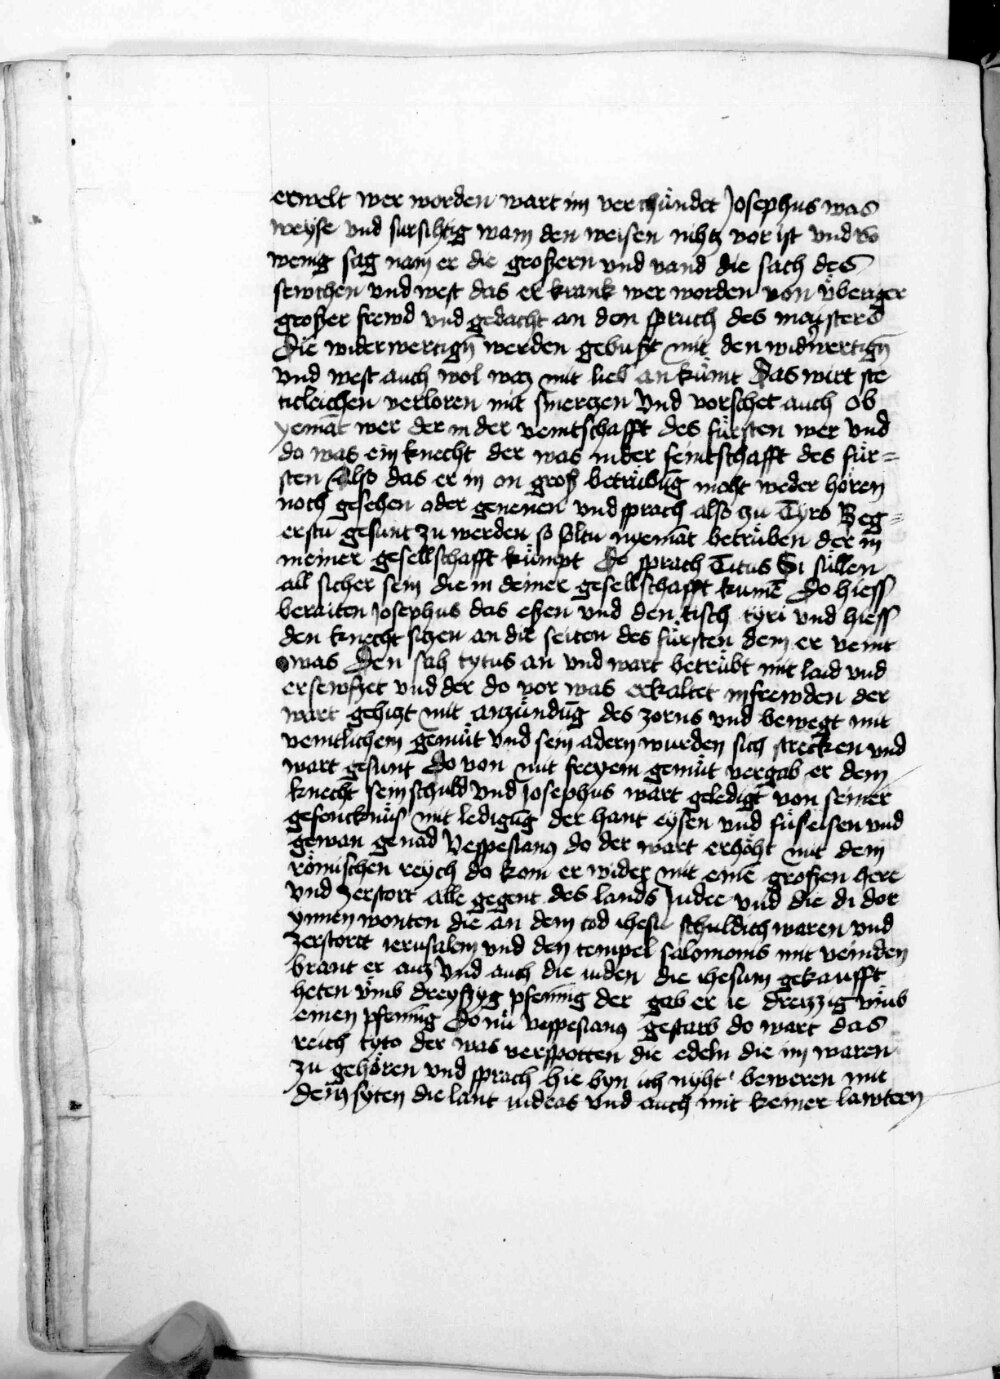 erwelt wer worden wart im verchündet Josephus was
weyse vnd fursihtig wann den weisen nihtz vor ist vnd vō
wenig sag nam er die großern vnd vand die sach des
sewchen vnd west das er krank wer worden von vberiger
großer frewd vnd gedacht an den spruch des maysters
Die widerwertigñ werden gebußt mit den widwertigñ
vnd west auch wol waz mit lieb an kümt Das wirt ste
ticleichen verloren mit smerczen Vnd vorschet auch ob
yemāt wer der in der veintschafft des fürsten wer Vnd
do was ein knecht der was in der feintschafft des für=
sten Also das er in on groß betrübūg nicht weder hören
noch gesehen oder genenen vnd sprach also zu Tyro Beg=
erstu gesunt zu werden so soltu nyemāt betrüben der in
meiner gesellschafft kümpt Do sprach Titus Si süllen
all sicher sein die in deiner gesellschafft kumē Do hiess
beraiten Josephus das eßen vnd den tisch tyri vnd hiess
den knecht siczen an die seiten des fürsten dem er veint
was Den sah tytus an vnd wart betrübt mit laid vnd
ersewfzet vnd der do vor was erkaltet in frewden der
wart gehiczt mit anzündūg des zorns vnd bewegt mit
veintlichem gemüt vnd sein adern wurden sich strecken vnd
wart gesunt Do von mit freyem gemüt vergab er dem
knecht sein schuld vnd Josephus wart geledigt von seiner
gefencknüs mit ledigūg der hant eysen vnd füseisen vnd
gewan genad Vespesianus do der wart erhöht mit dem
römischen reych do kom er wider mit einē großen here
vnd zerstort alle gegent des lands Judee vnd die di dor
ynnen wonten die an dem tod ihesu schuldich waren vnd
zerstortt ierusalem vnd den tempel salomonis mit veinden
brant er auz Vnd auch die iuden die ihesum gekaufft
heten vmb dreyßyg pfennig der gab er ie dreizzig vmb
einen pfennig Do nu vespesianus gestarb do wart das
reich tyto der was verspotten die edeln die im waren
zu gehören vnd sprach hie byn ich nyht beweren mit
den syten die lant iudeas vnd auch mit keiner lawtern